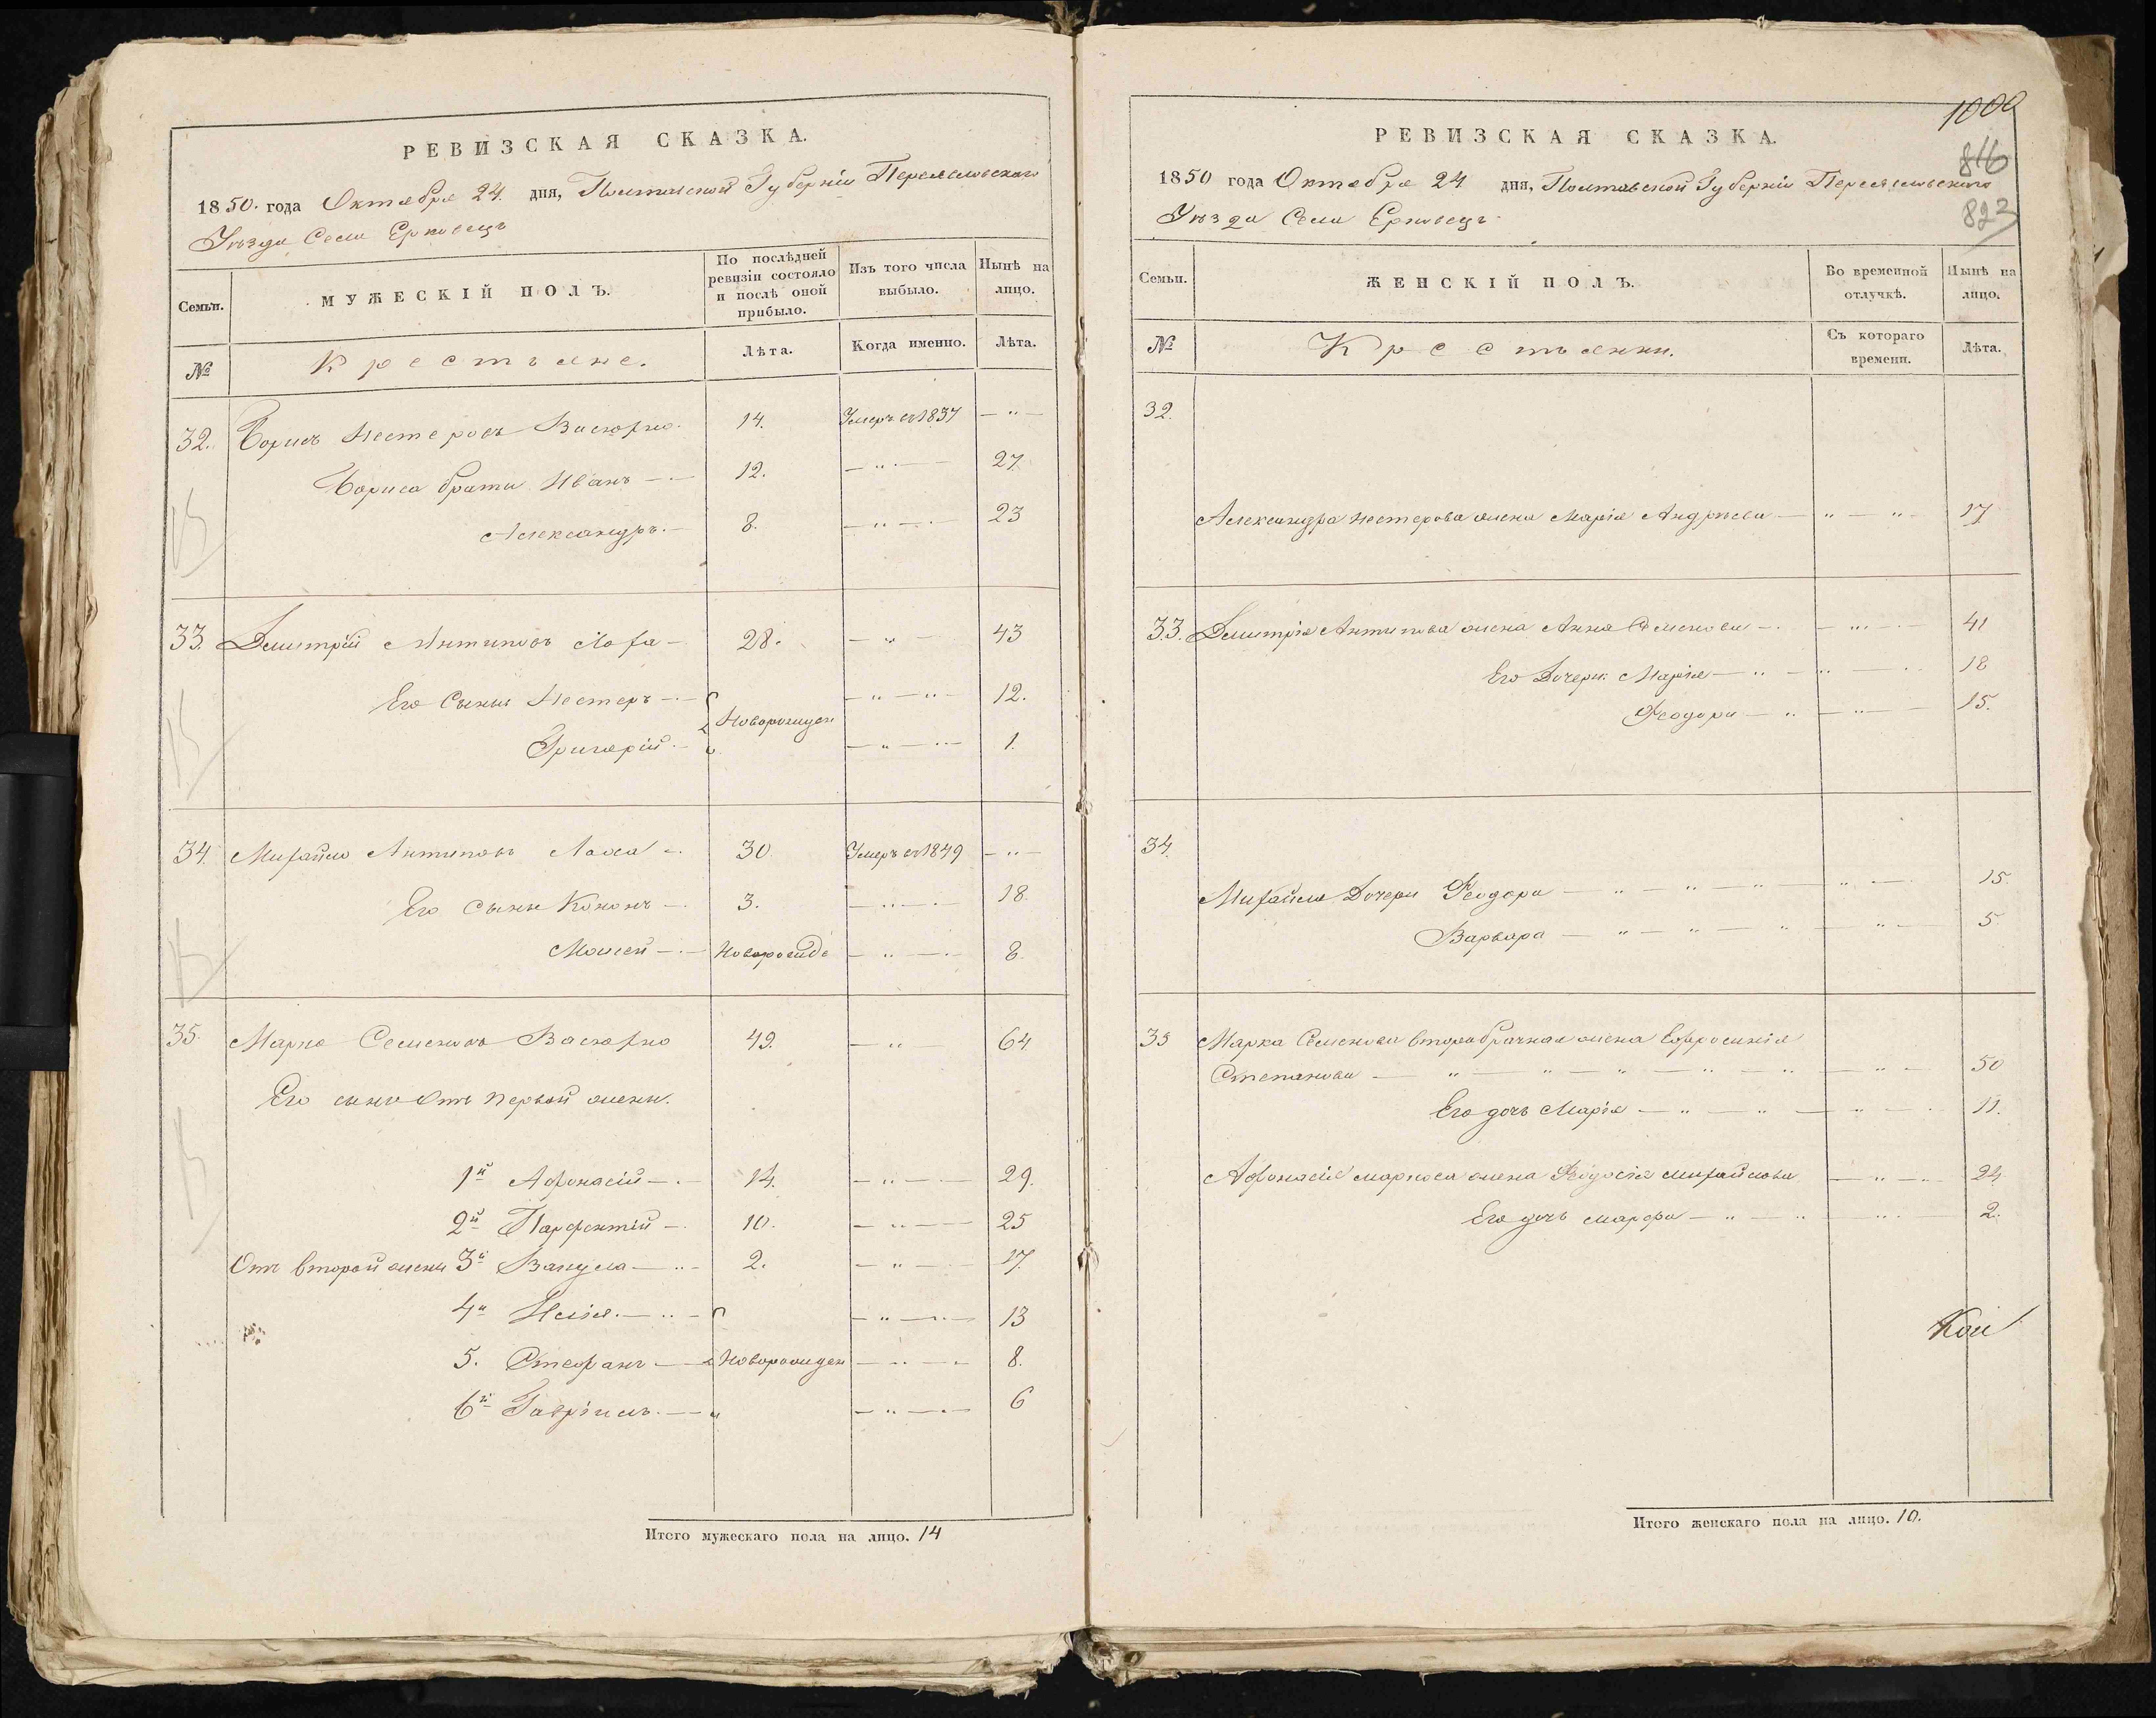 РЕВИЗСКАЯ СКАЗКА.
1850. года Октября 24. дня, Полтавской Губерніи Переяславскаго
Уѣзда Села Ерковецъ
Семьи.
МУЖЕСКІЙ ПОЛЪ.
По послѣдней ревизіи состояло и послѣ оной прибыло.
Изъ того числа выбыло.
Нынѣ на лицо.
№
Крестьяне.
Лѣта.
Когда именно.
Лѣта.
32. Борисъ Нестеровъ Васюхно. 14. Умеръ въ 1837 — " —
Бориса братья Иванъ — 12. — " — 27.
Александръ. — 8. — " — 23
33. Дмитрій Антиповъ — 28. — " — 43
Его Сыны Нестеръ — — " — " — 12.
Новорожден
Григорій. — — " — 1.
34. Михайло Антиповъ — 30. Умеръ въ 1849 — " —
Его Сыны Кононъ — 3. — " — 18.
Моисей — Новорожде — " — 8.
35. Марко Семеновъ Васюхно 49. — " 64
Его сыны Отъ первой жены.
1й Афонасій — 14. — " — 29.
2й Парфентій — 10. — " — 25
Отъ второй жены 3й Вакула — " — 2. — " — 17.
4й Илія. — " — — " — 13
5. Стефанъ — Новорожден — " — 8.
6й Гавріилъ. — — " — 6
Итого мужескаго пола на лицо. 14
1000
816
823
РЕВИЗСКАЯ СКАЗКА.
1850 года Октября 24 дня, Полтавской Губерніи Переяславскаго
Уѣзда Села Ерковецъ
Семьи.
ЖЕНСКІЙ ПОЛЪ.
Во временной отлучкѣ.
Нынѣ на лицо.
№
Крестьянки.
Съ котораго времени.
Лѣта.
32.
Александра Нестерова жена Марія Андреева — " — " — 17
33. Дмитрія Антипова жена Анна Семенова — " — 41
Его Дочери Марія — " — " — 18
Феодора — " — " — 15.
34.
Михайла Дочери Феодора — " — " — " — " — 15.
Варвара — " — " — " — " — 5.
35 Марка Семенова второбрачная жена Евфросинія
Степанова — " — " — " — " — " — " — 50
Его дочь Марія — " — " — " — 11.
Афонасія маркова жена Феодосія михайлова — " — 24
Его дочь марфа — " — " — " — 2.
Итого женскаго пола на лицо. 10.